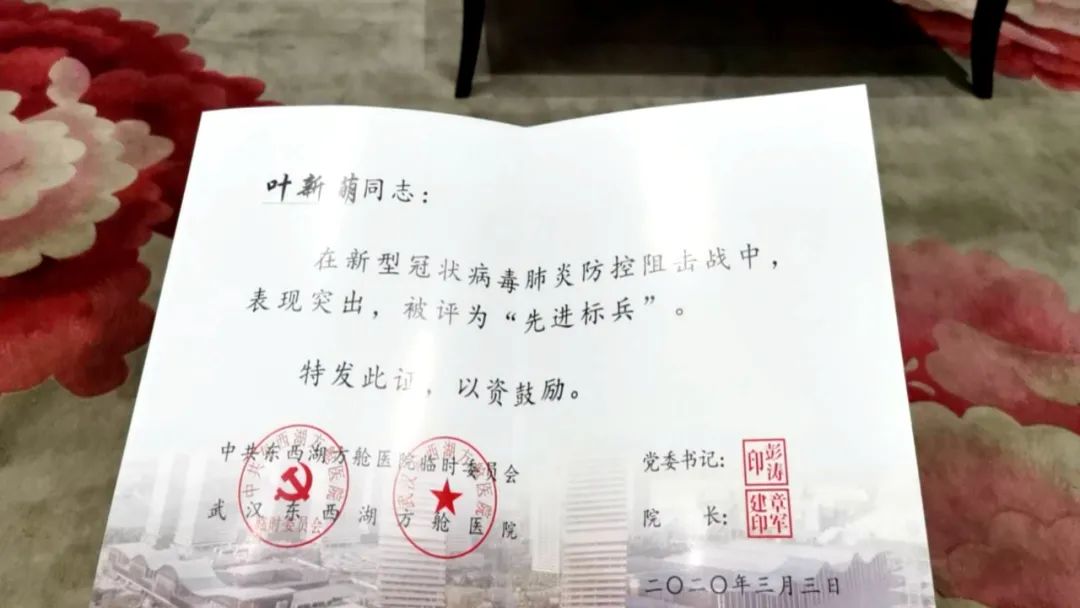 叶新萌同志：
在新型冠状病毒肺炎防控阻击战中，
表现突出，被评为“先进标兵”。
特发此证，以资鼓励。
中共东西湖方舱医院临时委员会
武汉东西湖方舱医院
党委书记：彭涛印
院长：章军建印
二〇二〇年三月三日